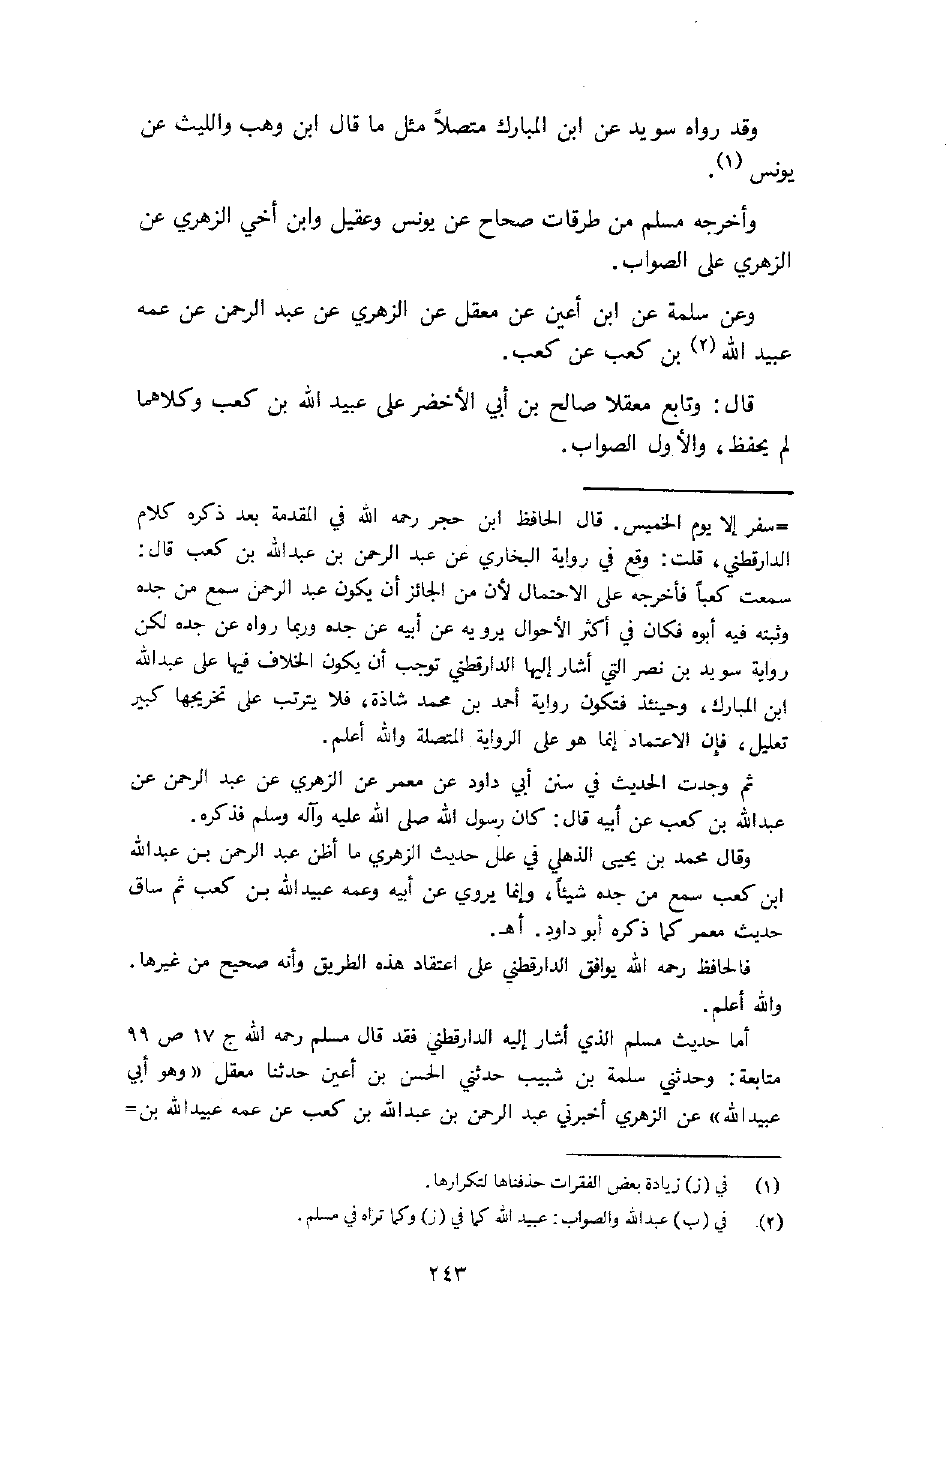 وقد رواه سويد عن ابن المبارك متصلاً مثل ما قال ابن وهب والليث عن
يونس (١).
وأخرجه مسلم من طرقات صحاح عن يونس وعقيل وابن أخي الزهري عن
الزهري على الصواب.
وعن سلمة عن ابن أعين عن معقل عن الزهري عن عبد الرحمن عن عمه
عبيد الله (٢) بن كعب عن كعب.
قال: وتابع معقلا صالح بن أبي الأخضر على عبيد الله بن كعب وكلاهما
لم يحفظ، والأول الصواب.
=سفر إلا يوم الخميس. قال الحافظ ابن حجر رحمه الله في المقدمة بعد ذكره كلام
الدارقطني، قلت: وقع في رواية البخاري عن عبد الرحمن بن عبدالله بن كعب قال:
سمعت كعباً فأخرجه على الاحتمال لأن من الجائز أن يكون عبد الرحمن سمع من جده
وثبته فيه أبوه فكان في أكثر الأحوال يرويه عن أبيه عن جده وربما رواه عن جده لكن
رواية سويد بن نصر التي أشار إليها الدارقطني توجب أن يكون الخلاف فيها على عبدالله
ابن المبارك، وحينئذ فتكون رواية أحمد بن محمد شاذة، فلا يترتب على تخريجها كبير
تعليل، فإن الاعتماد إنما هو على الرواية المتصلة والله أعلم.
ثم وجدت الحديث في سنن أبي داود عن معمر عن الزهري عن عبد الرحمن عن
عبدالله بن كعب عن أبيه قال: كان رسول الله صلى الله عليه وآله وسلم فذكره.
وقال محمد بن يحيى الذهلي في علل حديث الزهري ما أظن عبد الرحمن بن عبدالله
ابن كعب سمع من جده شيئاً، وإنما يروي عن أبيه وعمه عبيدالله بن كعب ثم ساق
حديث معمر كما ذكره أبو داود. أهـ.
فالحافظ رحمه الله يوافق الدارقطني على اعتقاد هذه الطريق وأنه صحيح من غيرها.
والله أعلم.
أما حديث مسلم الذي أشار إليه الدارقطني فقد قال مسلم رحمه الله ج ١٧ ص ٩٩
متابعة: وحدثني سلمة بن شبيب حدثني الحسن بن أعين حدثنا معقل «وهو أبي
عبيدالله» عن الزهري أخبرني عبد الرحمن بن عبدالله بن كعب عن عمه عبيدالله بن=
(١) في (ز) زيادة بعض الفقرات حذفناها لتكرارها.
(٢). في (ب) عبدالله والصواب: عبيد الله كما في (ز) وكما تراه في مسلم.
٢٤٣